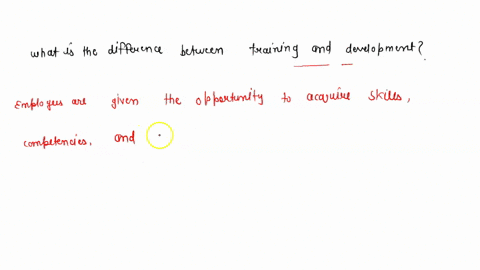 what is the difference between training and development?
Employees are given the opportunity to acquire skills,
competencies, and